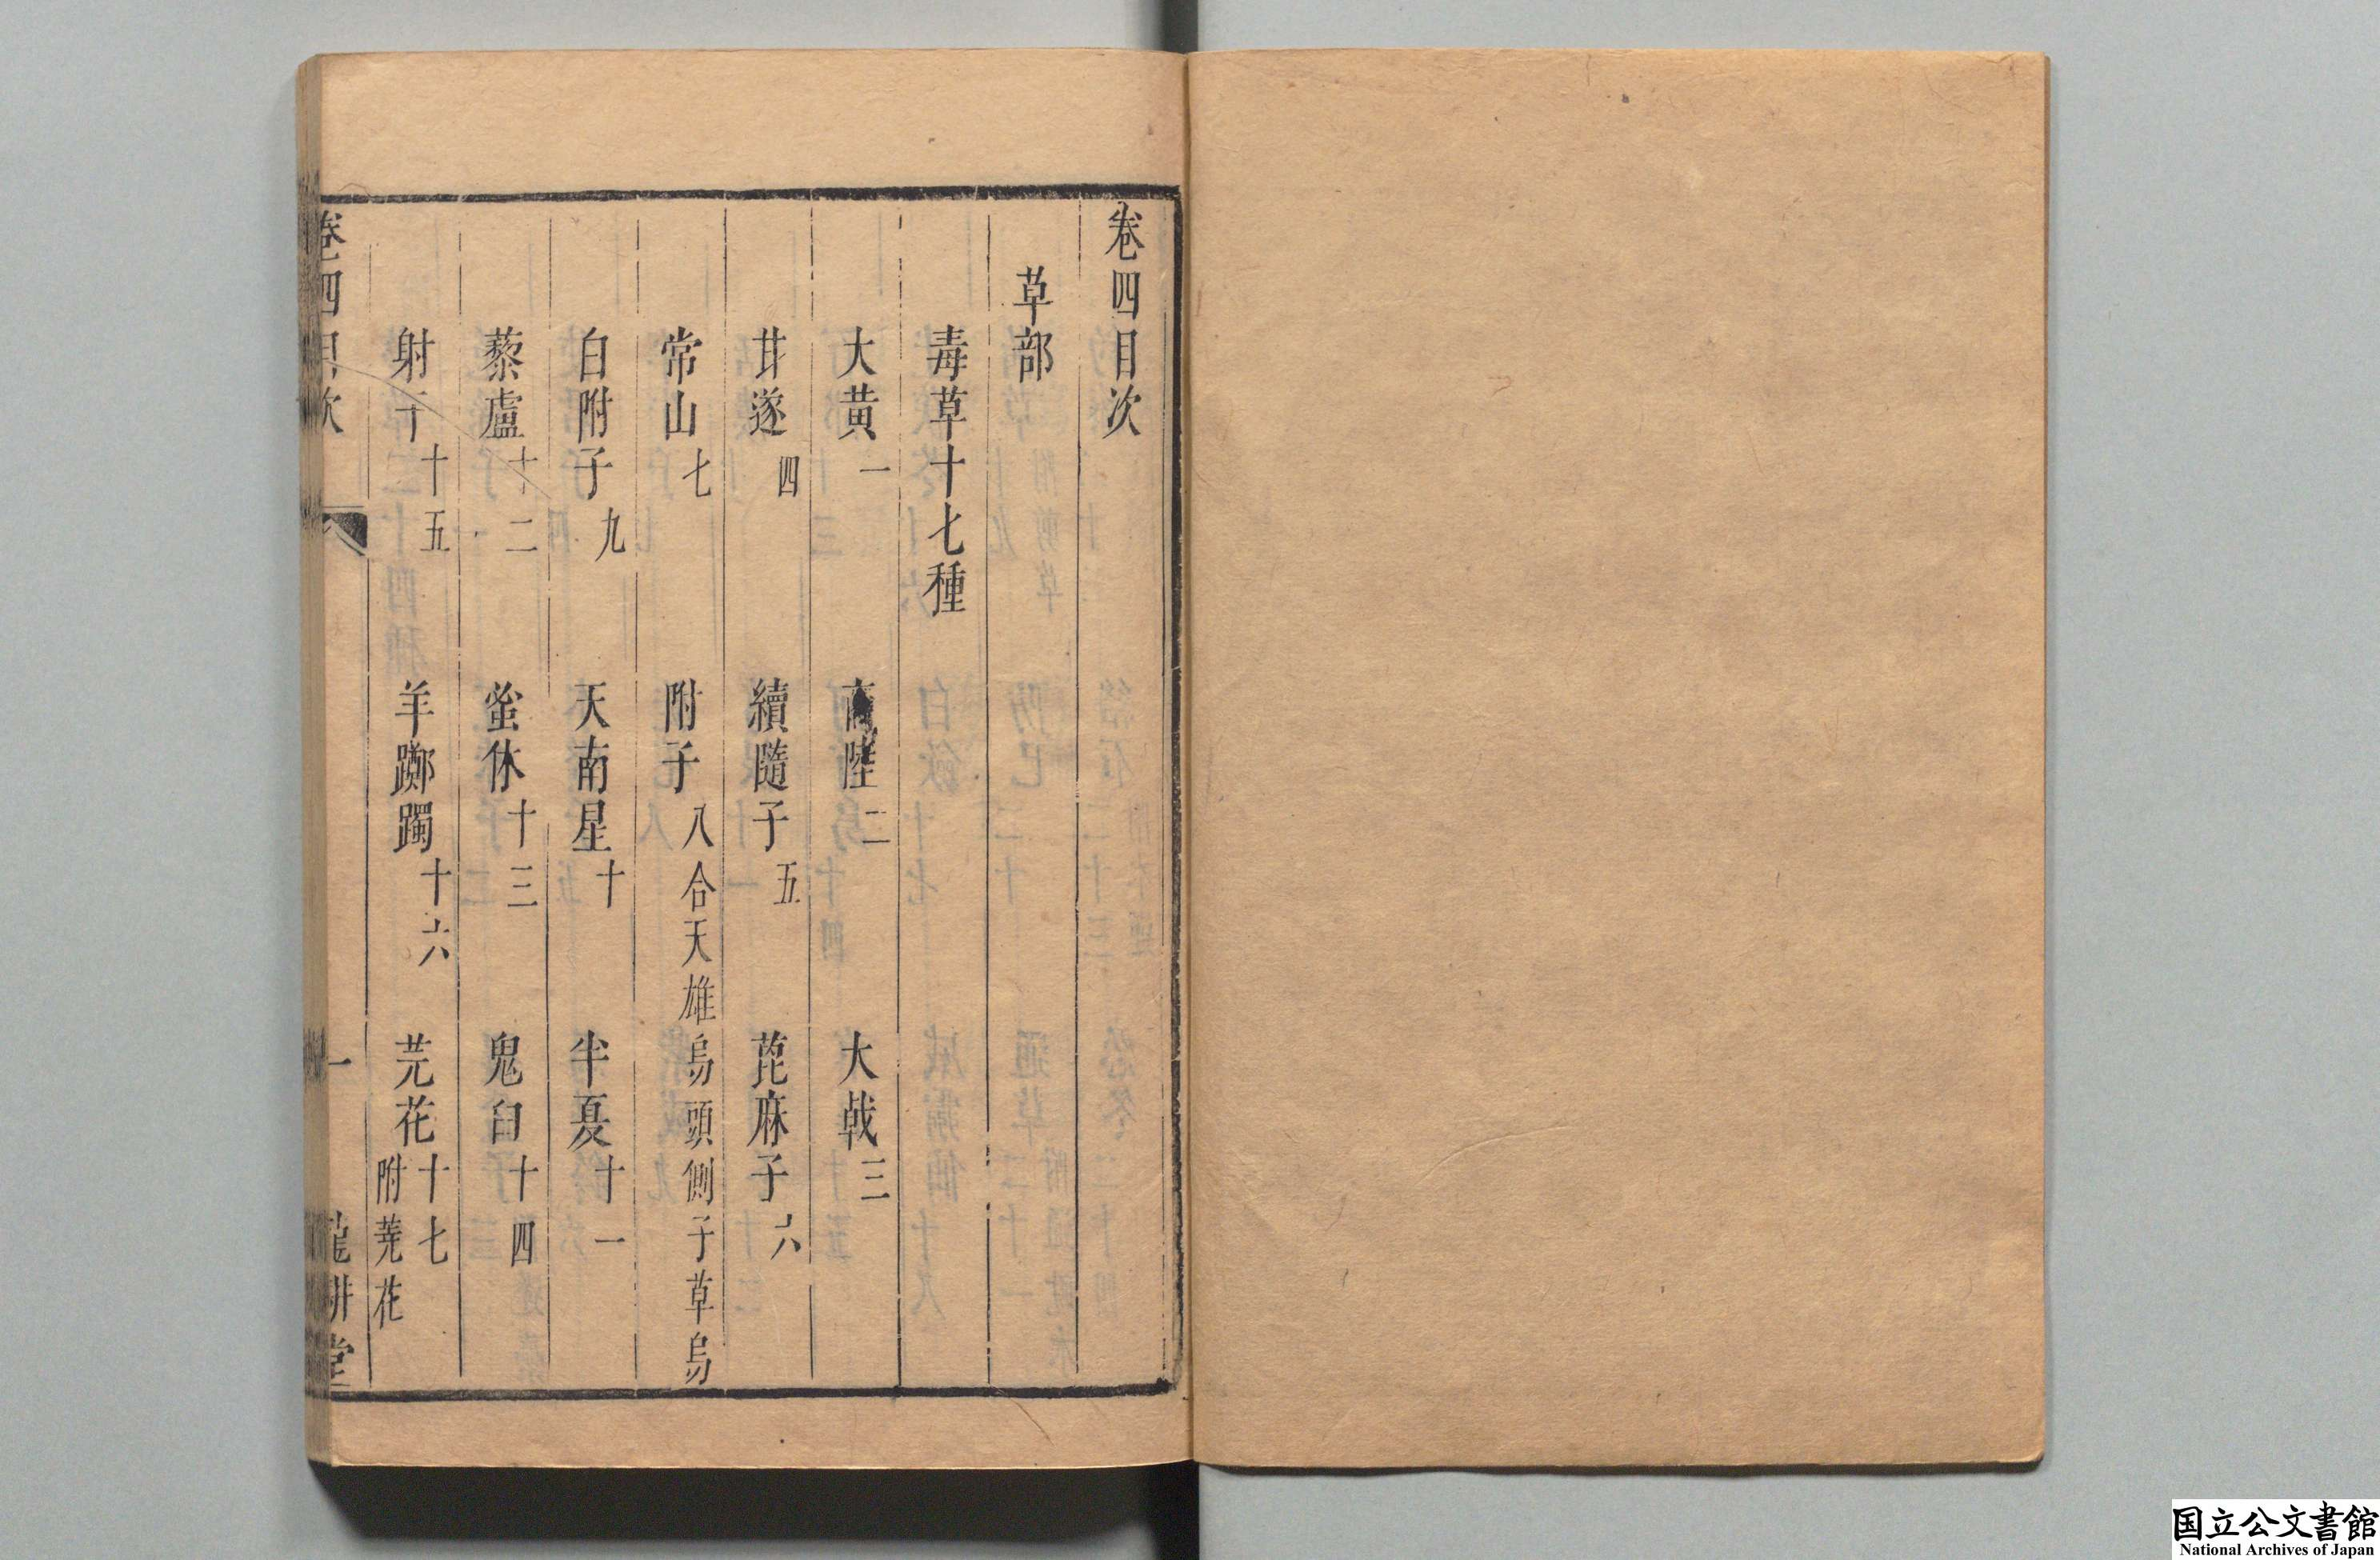 卷四目次
草部
毒草十七種
大黄一 商陸二 大戟三
甘遂四 續隨子五 蓖麻子六
常山七 附子八合天雄烏頭側子草烏
白附子九 天南星十 半夏十一
藜蘆十二 蚤休十三 鬼臼十四
射干十五 羊躑躅十六 芫花十七附蕘花
卷四目次 一 龍耕堂
国立公文書館
National Archives of Japan